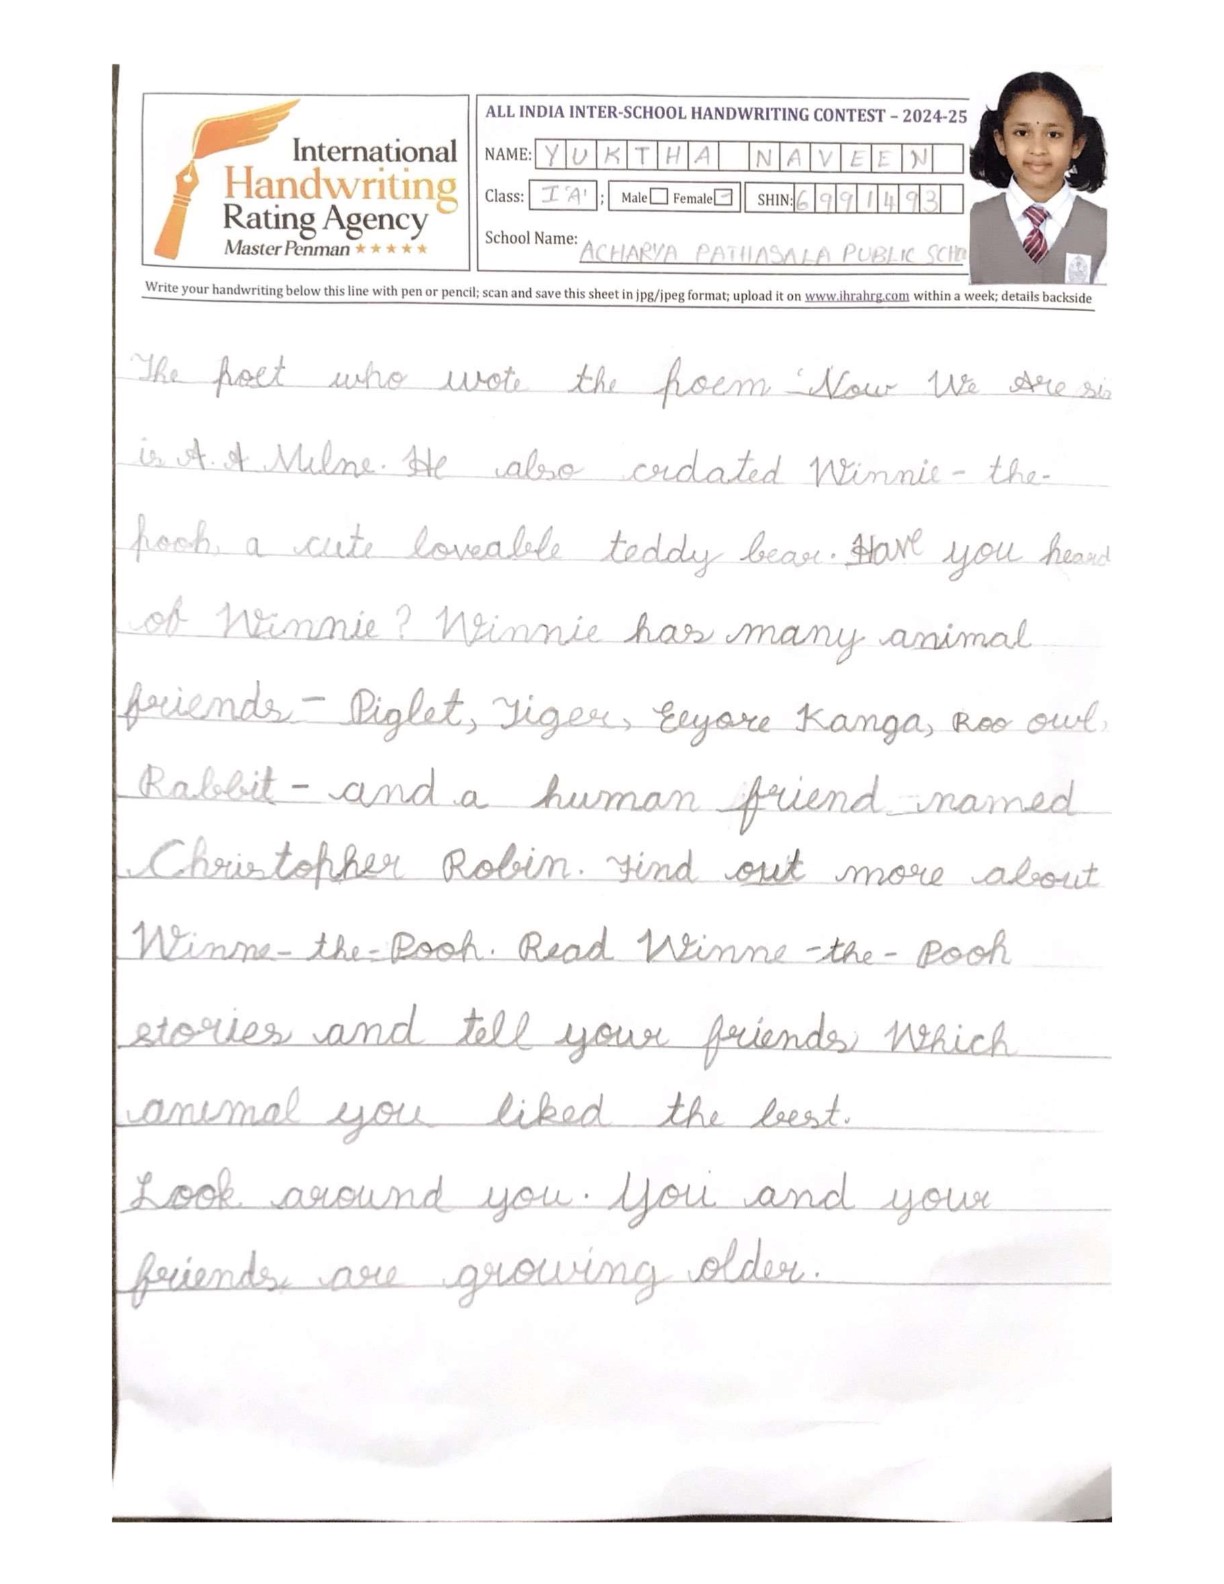 International
Handwriting
Rating Agency
Master Penman ★★★★★
ALL INDIA INTER-SCHOOL HANDWRITING CONTEST – 2024-25
NAME: YUKTHA NAVEEN
Class: I 'A' ; Male Female SHIN: 6991493
School Name: ACHARYA PATHASALA PUBLIC SCHO
Write your handwriting below this line with pen or pencil; scan and save this sheet in jpg/jpeg format; upload it on www.ihrahrg.com within a week; details backside
The poet who wote the poem 'Now We Are six
is A. A Milne. He also crdated Winnie - the-
pooh, a cute loveable teddy bear. Have you heard
of Winnie? Winnie has many animal
friends - Piglet, Tiger, Eeyore Kanga, Roo owl,
Rabbit - and a human friend named
Christopher Robin. Find out more about
Winne- the- Pooh. Read Winne -the - Pooh
stories and tell your friends Which
animal you liked the best.
Look around you. You and your
friends, are growing older.